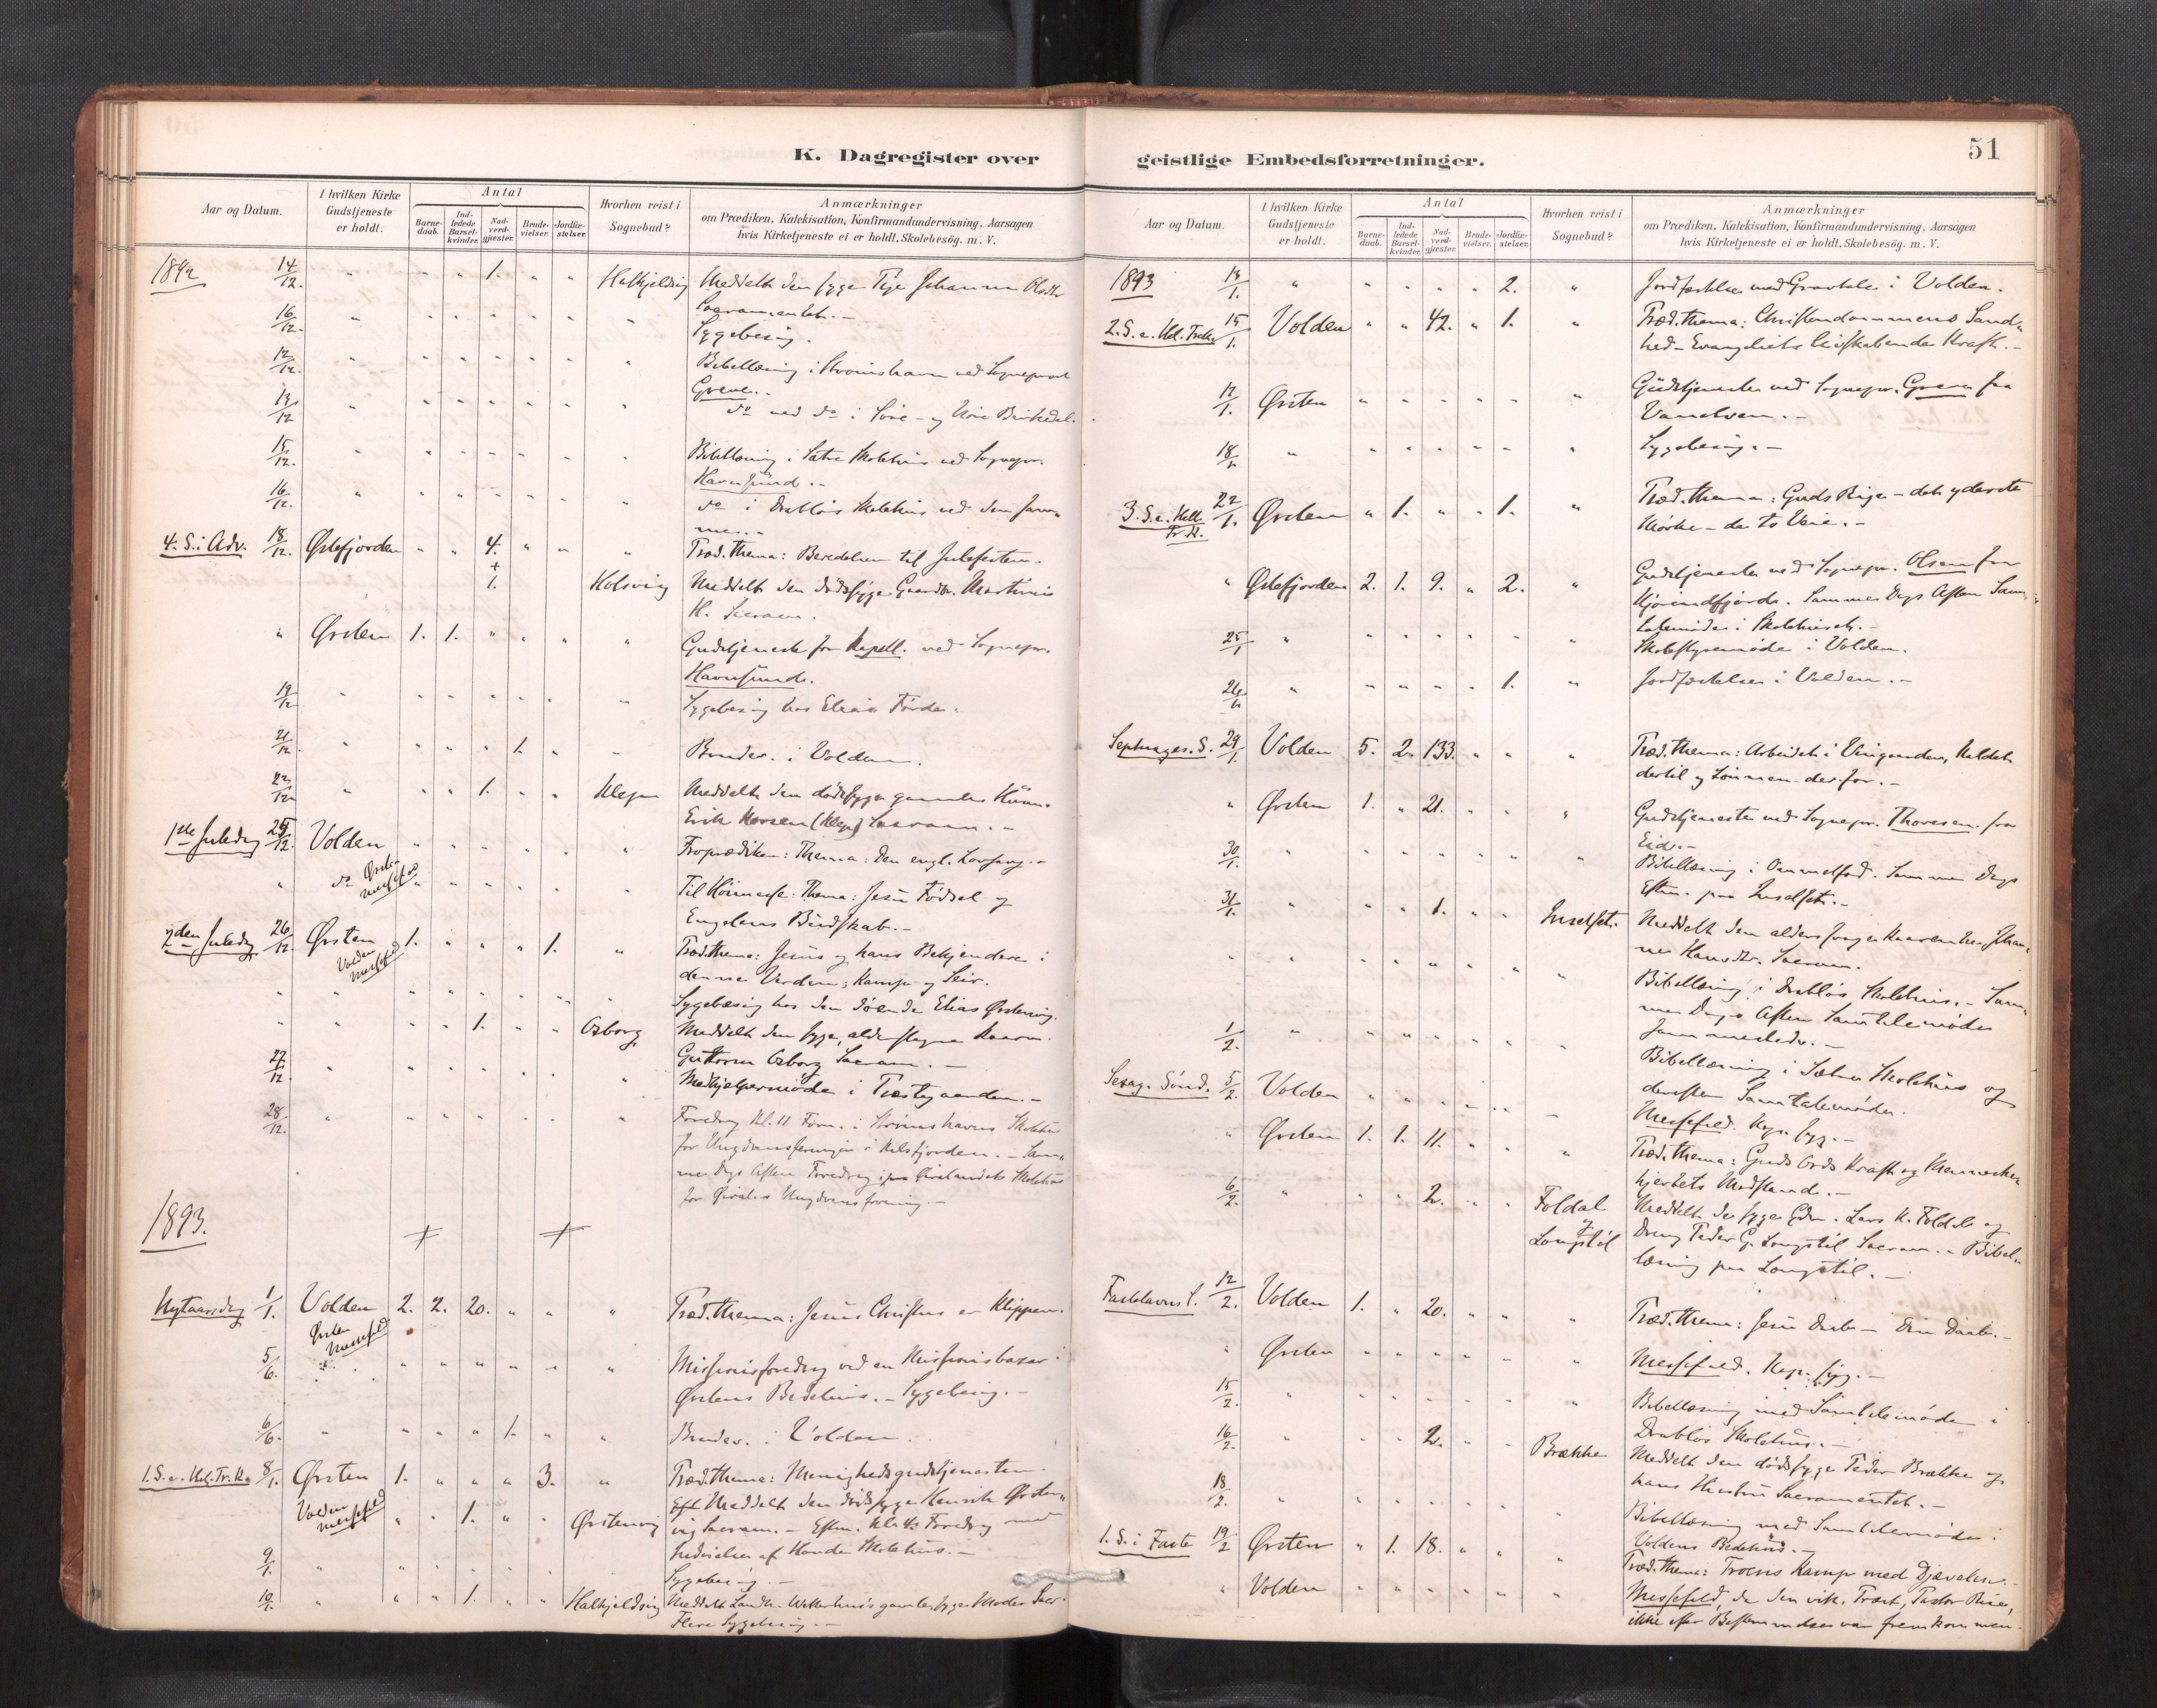 K. Dagregister over
Aar og Datum.
I hvilken Kirke Gudstjeneste er holdt.
Antal
Barne-daab.
Ind-ledede Barsel-kvinder.
Nad-verd-gjæster.
Brude-vielser.
Jordfæ-stelser.
Hvorhen reist i Sognebud?
Anmærkninger
om Prædiken, Katekisation, Konfirmandundervisning, Aarsagen
hvis Kirketjeneste ei er holdt, Skolebesög. m. V.
1892 14/12. " " " 1. " " Halkjelsvig Meddelt den syge Pige Johanna Olsdtr
Sacramentet. –
16/12. " " " " " " " Sygebesøg.
12/12. " " " " " " " Bibellæsning i Straumshavn ved Sognepræst
Greve. –
13/12 " " " " " " " do ved do i Birkedal.
15/12. " " " " " " " Bibellæsning i Sætre Skolehus ved Sognepr.
Havnsund. –
16/12. " " " " " " " do i Drabløs Skolehus ved den sam-
me. –
4. S. i Adv. 18/12. Østefjorden " " 4. " " " Præd. thema: Beredelsen til Julefesten.
+
1. Kolsvig Meddelt den dødssyge Martinus
H. Sacram.
" Ørsten 1. 1. " " " " Gudstjeneste for Kapell. ved Sognepr.
Havnsund.
19/12 " " " " " " " Sygebesøg hos Elias Førde.
21/12 " " " " 1. " " Brudev. i Volden.
22/12 " " " 1. " " Klepe Meddelt den dødssyge gamle
Erik (Klepe) Sacram. –
1ste Juledag 25/12. Volden " " " " " " Froprædiken: Thema: Den engl. Lovsang. –
" do Ørsten messefald " " " " " " Til Høimesse: Thema: Jesu Fødsel og
Engelens Budskab. –
2den Juledag 26/12 Ørsten 1. " " " 1. " Præd. thema: Jesus og hans Bekjendere i
Volden messefald
denne Verden; Kamp og Seir.
" " " " " " " Sygebesøg hos den døende Elias Ørstenvig.
" " " " 1. " " Osborg Meddelt den syge, alderstegne
Guttorm Osborg Sacram. –
27/12. " " " " " " " Medhjelpermøde i Præstegaarden. –
28/12. " " " " " " " Foredrag Kl. 11 Form. i Straumshavns Skolehus
for Ungdomsforeningen i Kilsfjorden. – Sam-
me Dags Aften Foredrag i Skolehus
for Ungdomsforening. –
1893.
Nytaarsdag 1/1. Volden 2. 2. 20. " " " Præd. thema: Jesus Christus er Klippen.
Ørsten messefald
5/6. " " " " " " " Missionsforedrag ved en Missionsbazar i
Ørstens Bedehus. – Sygebesøg. –
6/6. " " " " 1. " " Brudev. i Volden.
1. S. e. Hel. Tr. K. 8/1. Ørsten 1. " " " 3. " Præd. thema: Menighedsgudstjenesten.
Volden messefald " " 1. " " Ørstenvig Meddelt den dødssyge Henrik Ørsten-
vig Sacram. – Eftm. Kl. 4: Foredrag med
Indvielse af Hovde Skolehus. –
9/1. " " " " " " " Sygebesøg. –
10/1. " " " 1. " " Halkjelsvig Meddelt gamle, syge Moder Sacr.
Flere Sygebesøg. –
geistlige Embedsforretninger.
51
Aar og Datum.
I hvilken Kirke Gudstjeneste er holdt.
Antal
Barne-daab.
Ind-ledede Barsel-kvinder.
Nad-verd-gjæster.
Brude-vielser.
Jordfæ-stelser.
Hvorhen reist i Sognebud?
Anmærkninger
om Prædiken, Katekisation, Konfirmandundervisning, Aarsagen
hvis Kirketjeneste ei er holdt, Skolebesög. m. V.
1893 13/1. " " " " " 2. " Jordfæstelse med Gravtale i Volden.
2. S. e. Hel. Tr. K. 15/1. Volden " " 42. " 1. " Præd. thema: Christendommens Sand-
hed – Evangeliets livskabende Kraft. –
17/1. Ørsten " " " " " " Gudstjeneste ved Sognepr. Greve fra
Vanelven. –
18/1 " " " " " " " Sygebesøg. –
3. S. e. Hell. Tr. K. 22/1. Ørsten " 1. " " 1. " Præd. thema: Guds Rige – det yderste
Mørke – de to Veie. –
" Østefjorden 2. 1. 9. " 2. " Gudstjeneste ved Sognepr. Olsen fra
Hjørundfjord. Samme Dags Aften Sam-
talemøde i Skolehuset. –
25/1 " " " " " " " Skolestyremøde i Volden.
26/1 " " " " " 1. " Jordfæstelse i Volden. –
Septuages. S. 29/1. Volden 5. 2. 133. " " " Præd. thema: Arbeidet i Vingaarden, Kaldet
dertil og Lønnen derfor. –
" Ørsten 1. " 21. " " " Gudstjeneste ved Sognepr. Thoresen fra
Eid. –
30/1. " " " " " " " Bibellæsning i Ommelfod. Samme Dags
Eftm. paa Inselset. –
31/1. " " " 1. " " Inselset. Meddelt den
Hansdtr. Sacram.
" " " " " " " Bibellæsning i Drabløs Skolehus. – Sam-
me Dags Aften Samtalemøde
sammesteds. –
1/2. " " " " " " " Bibellæsning i Sætre Skolehus og
derefter Samtalemøde.
Sexag. Sønd. 5/2. Volden " " " " " " Messefald. Kap. syg. –
" Ørsten 1. 1. 11. " " " Præd. thema: Guds Ords Kraft og Menneske-
hjertets Modstand. –
6/2. " " " 2. " " Foldal & Longstøl Meddelt de syge Gdm. Lars K. Foldal og
Dreng Peder G. Longstøl Sacram. – Bibel-
læsning paa Longstøl. –
Fastelavns S. 12/2. Volden 1. " 20. " " " Præd. thema: Jesu Daab – din Daab. –
" Ørsten " " " " " " Messefald. Kap. syg. –
15/2. " " " " " " " Bibellæsning med Samtalemøde i
Drabløs Skolehus. –
16/2. " " " 2. " " Brække Meddelt den dødssyge Peder Brække og
hans Hustru Sacramentet. –
18/2. " " " " " " " Bibellæsning med Samtalemøde i
Voldens Bedehus. –
1. S. i Faste 19/2 Ørsten " 1. 18. " " " Præd. thema: Troens Kamp med Djævelen. –
" Volden " " " " " " Messefald, da den vik. Præst, Pastor
ikke efter Bestemmelse var fremkommen.